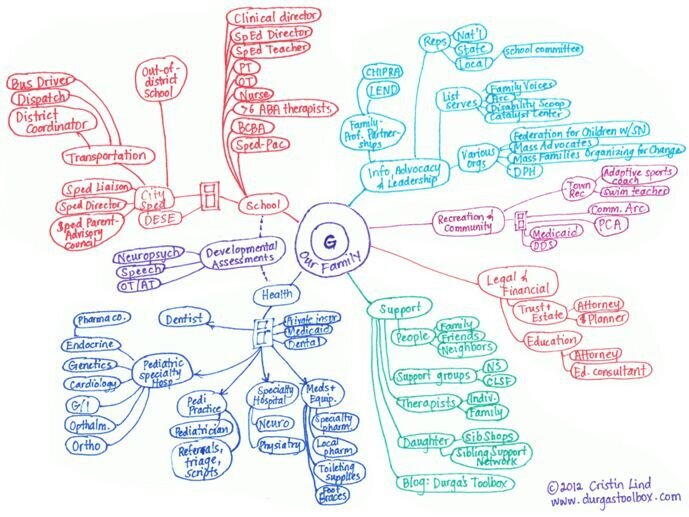 Clinical director
SpEd Director
SpEd Teacher
PT
OT
Nurse
>6 ABA therapists
BCBA
Sped-Pac
School
Out-of-
district
school
Bus Driver
Dispatch
District
Coordinator
Transportation
Sped Liaison
Sped Director
Sped Parent
Advisory
Council
City
Sped
DESE
Neuropsych
Speech
OT/AT
Developmental
Assessments
Health
G
Our Family
CHIPRA
LEND
Family-
Prof. Partner-
ships
Info, Advocacy
& Leadership
Reps
Nat'l
State
Local
school committee
List
serves
Family Voices
Arc
Disability Scoop
Catalyst Center
Various
Orgs
Federation for Children w/SN
Mass Advocates
Mass Families Organizing for Change
DPH
Recreation &
Community
Town
Rec
Adaptive sports
coach
Swim teacher
Comm. Arc
PCA
Medicaid
DDS
Legal &
Financial
Trust &
Estate
Attorney
$ Planner
Education
Attorney
Ed. consultant
Support
People
Family
Friends
Neighbors
Support groups
NS
CLSF
Therapists
Indiv.
Family
Daughter
SibShops
Sibling Support
Network
Blog: Durga's Toolbox
Dentist
Private insur
Medicaid
Dental
Pharma co.
Endocrine
Genetics
Cardiology
G/I
Opthalm.
Ortho
Pediatric
specialty
Hosp
Pedi
Practice
Pediatrician
Referrals,
triage,
scripts
Specialty
Hospital
Neuro
Physiatry
Meds +
Equip.
Specialty
pharm
Local
pharm
Toileting
supplies
Foot
Braces
© 2012 Cristin Lind
www.durgastoolbox.com